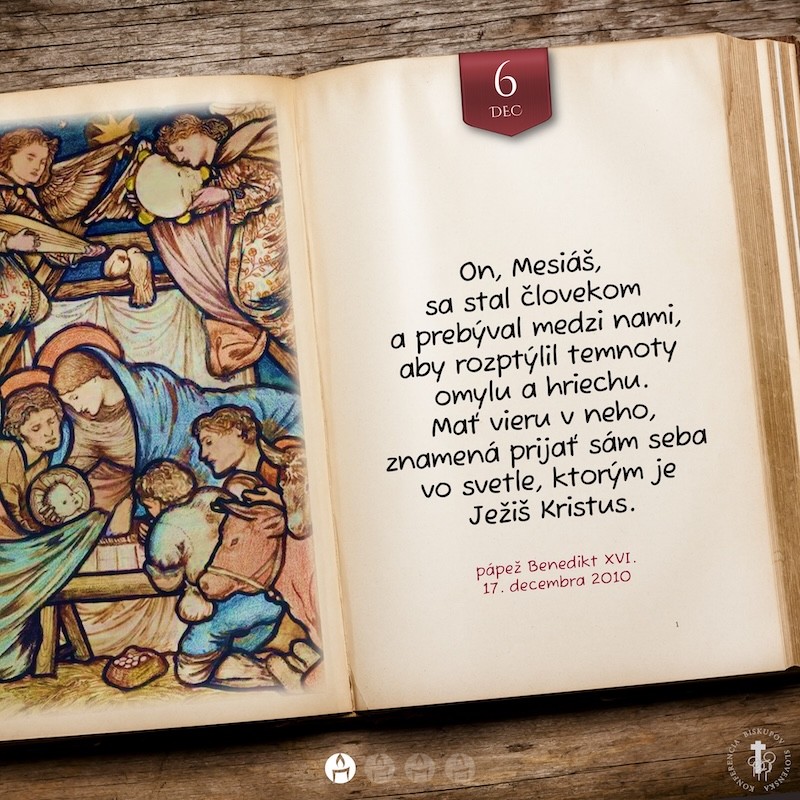 6
DEC
On, Mesiáš,
sa stal človekom
a prebýval medzi nami,
aby rozptýlil temnoty
omylu a hriechu.
Mať vieru v neho,
znamená prijať sám seba
vo svetle, ktorým je
Ježiš Kristus.
pápež Benedikt XVI.
17. decembra 2010
1
KONFERENCIA BISKUPOV SLOVENSKA